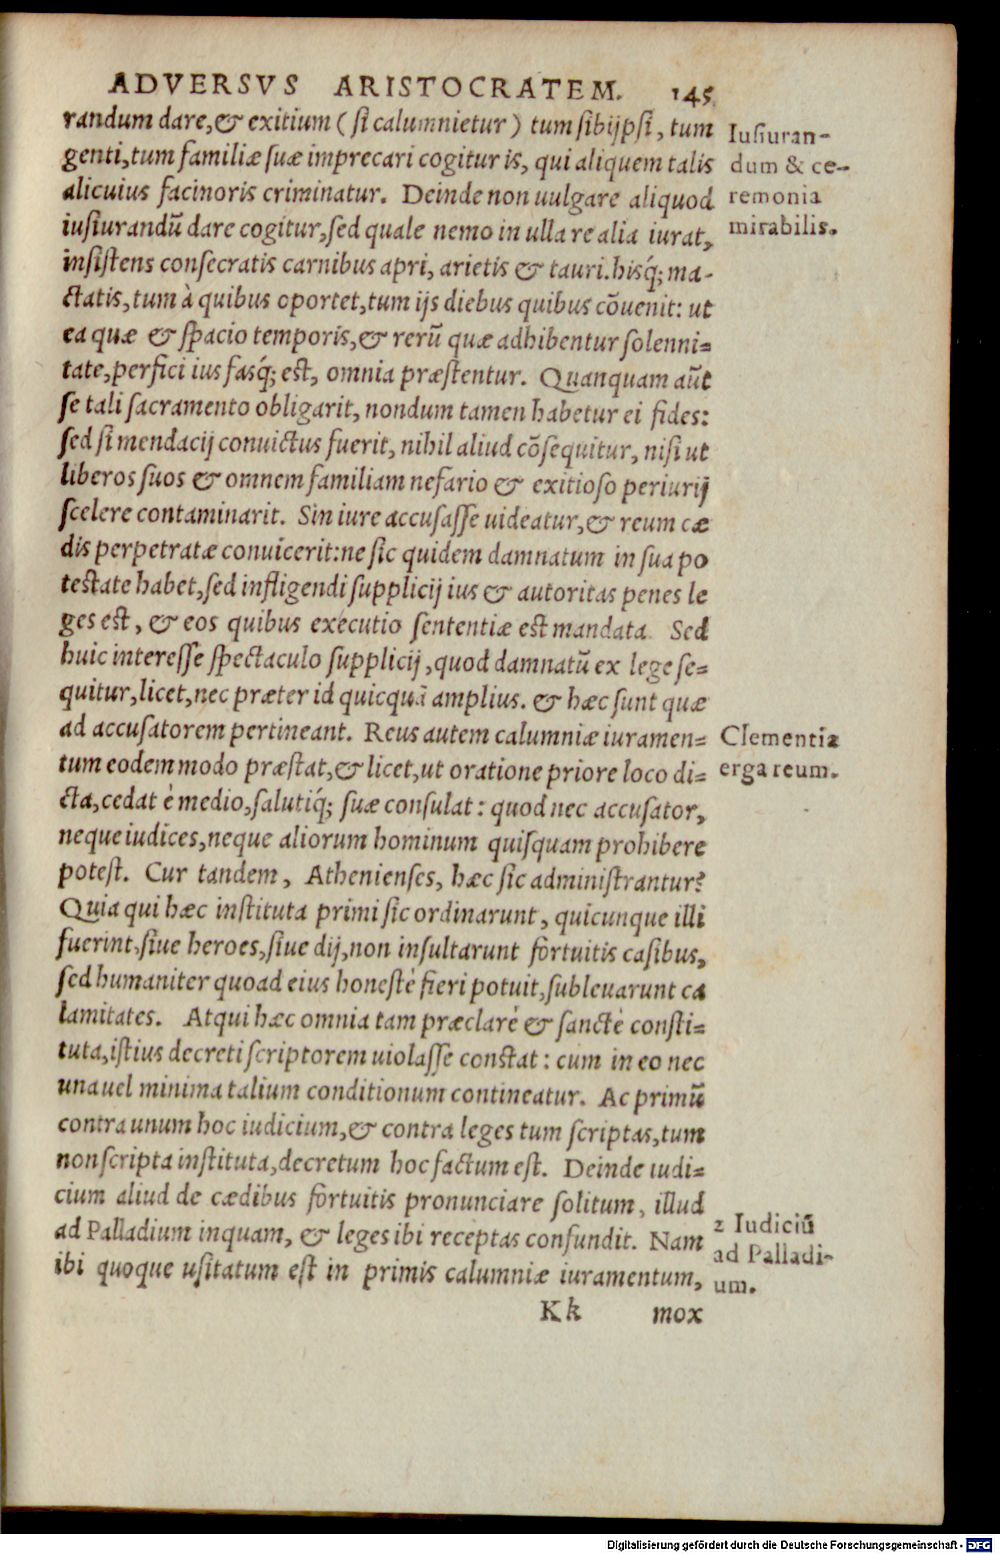 ADVERSVS ARISTOCRATEM. 145
randum dare, & exitium (si calumnietur) tum sibijpsi, tum
genti, tum familiæ suæ imprecari cogitur is, qui aliquem talis
alicuius facinoris criminatur. Deinde non uulgare aliquod
iusiurandũ dare cogitur, sed quale nemo in ulla re alia iurat,
insistens consecratis carnibus apri, arietis & tauri. hisq́; ma-
ctatis, tum à quibus oportet, tum ijs diebus quibus cõuenit: ut
ea quæ & spacio temporis, & rerũ quæ adhibentur solenni=
tate, perfici ius fasq́; est, omnia præstentur. Quanquam aũt
se tali sacramento obligarit, nondum tamen habetur ei fides:
sed si mendacij conuictus fuerit, nihil aliud cõsequitur, nisi ut
liberos suos & omnem familiam nefario & exitioso periurij
scelere contaminarit. Sin iure accusasse uideatur, & reum cæ
dis perpetratæ conuicerit: ne sic quidem damnatum in sua po
testate habet, sed infligendi supplicij ius & autoritas penes le
ges est, & eos quibus executio sententiæ est mandata. Sed
huic interesse spectaculo supplicij, quod damnatũ ex lege se=
quitur, licet, nec præter id quicquã amplius. & hæc sunt quæ
ad accusatorem pertineant. Reus autem calumniæ iuramen=
tum eodem modo præstat, & licet, ut oratione priore loco di=
cta, cedat è medio, salutiq́; suæ consulat: quod nec accusator,
neque iudices, neque aliorum hominum quisquam prohibere
potest. Cur tandem, Athenienses, hæc sic administrantur?
Quia qui hæc instituta primi sic ordinarunt, quicunque illi
fuerint, siue heroes, siue dij, non insultarunt fortuitis casibus,
sed humaniter quoad eius honestè fieri potuit, subleuarunt ca
lamitates. Atqui hæc omnia tam præclarè & sanctè consti=
tuta, istius decreti scriptorem uiolasse constat: cum in eo nec
una uel minima talium conditionum contineatur. Ac primũ
contra unum hoc iudicium, & contra leges tum scriptas, tum
non scripta instituta, decretum hoc factum est. Deinde iudi=
cium aliud de cædibus fortuitis pronunciare solitum, illud
ad Palladium inquam, & leges ibi receptas confundit. Nam
ibi quoque usitatum est in primis calumniæ iuramentum,
Kk mox
Iusiuran-
dum & ce-
remonia
mirabilis.
Clementia
erga reum.
2 Iudiciũ
ad Palladi-
um.
Digitalisierung gefördert durch die Deutsche Forschungsgemeinschaft - DFG